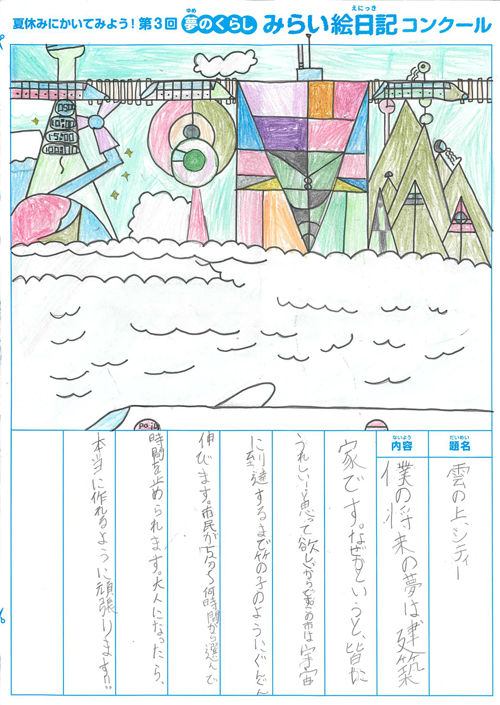 夏休みにかいてみよう！第3回 夢のくらし みらい絵日記コンクール
ゆめ
えにっき
だいめい
題名
雲の上、シティー
ないよう
内容
僕の将来の夢は建築
家です。なぜかというと、皆に
うれしい!と思って欲しいからです。この市は宇宙
に到達するまで竹の子のようにぐんぐん
伸びます。市民が何分〜何時間から選んで
時間を止められます。大人になったら、
本当に作れるように頑張ります!!